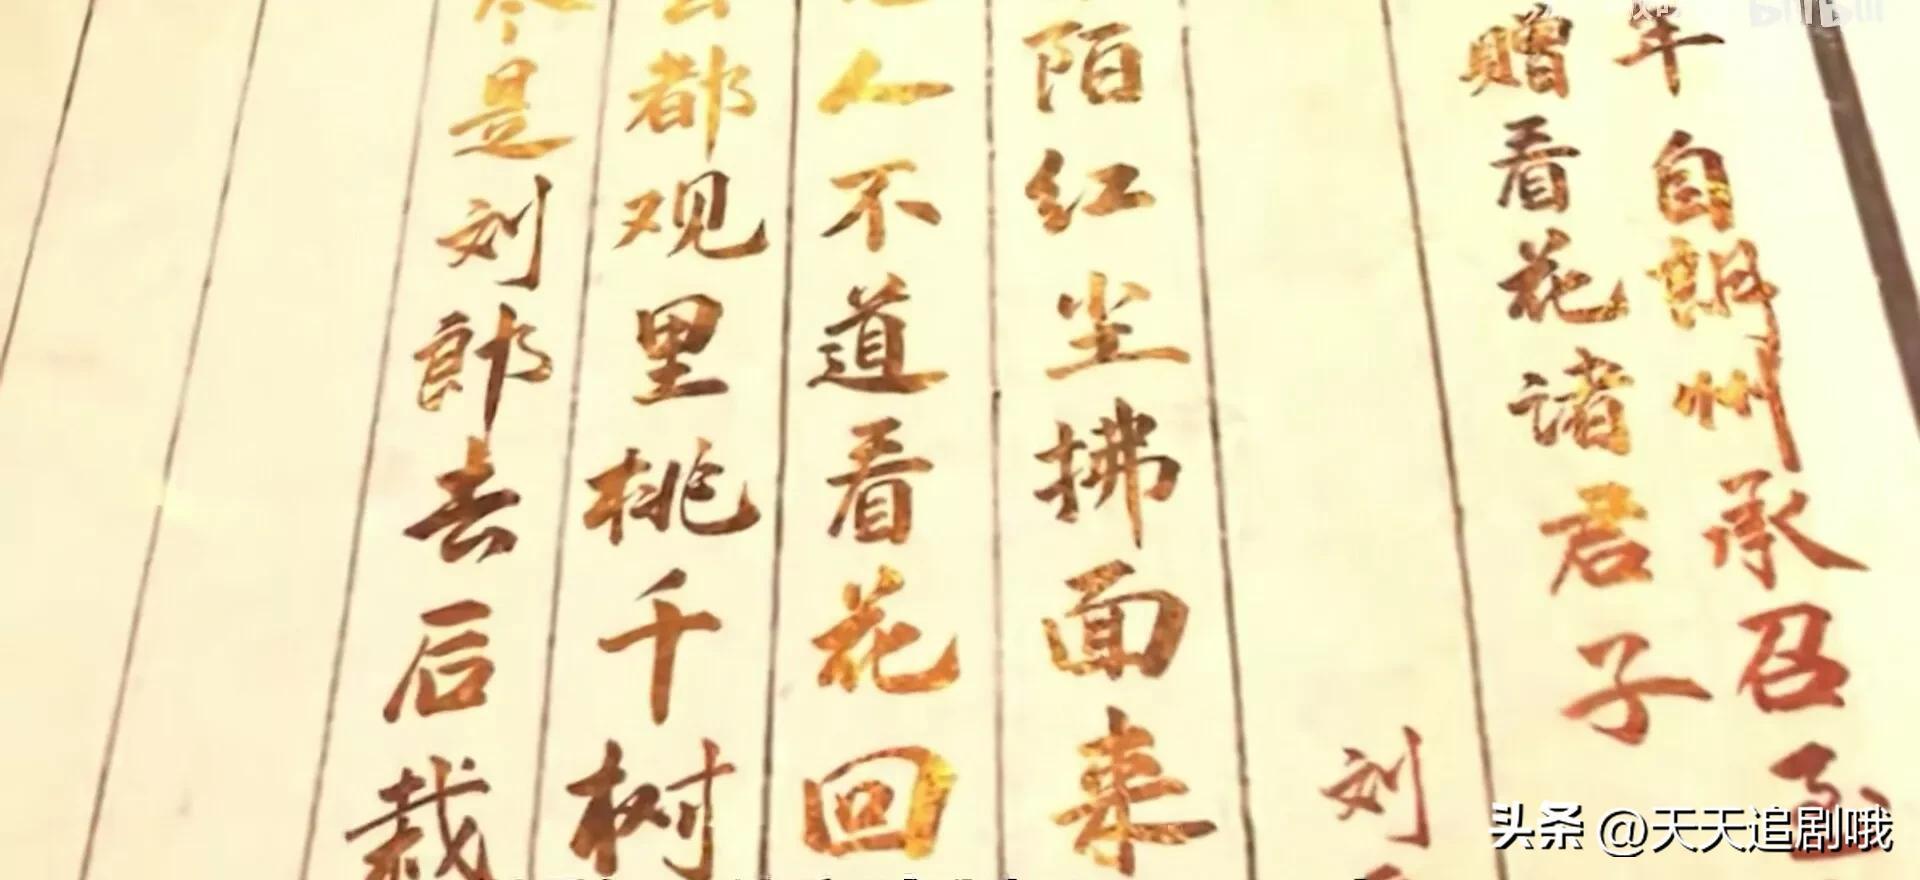 年自朗州承召至
赠看花诸君子
刘
陌红尘拂面来
人不道看花回
都观里桃千树
是刘郎去后栽
头条 @天天追剧哦
bilibili